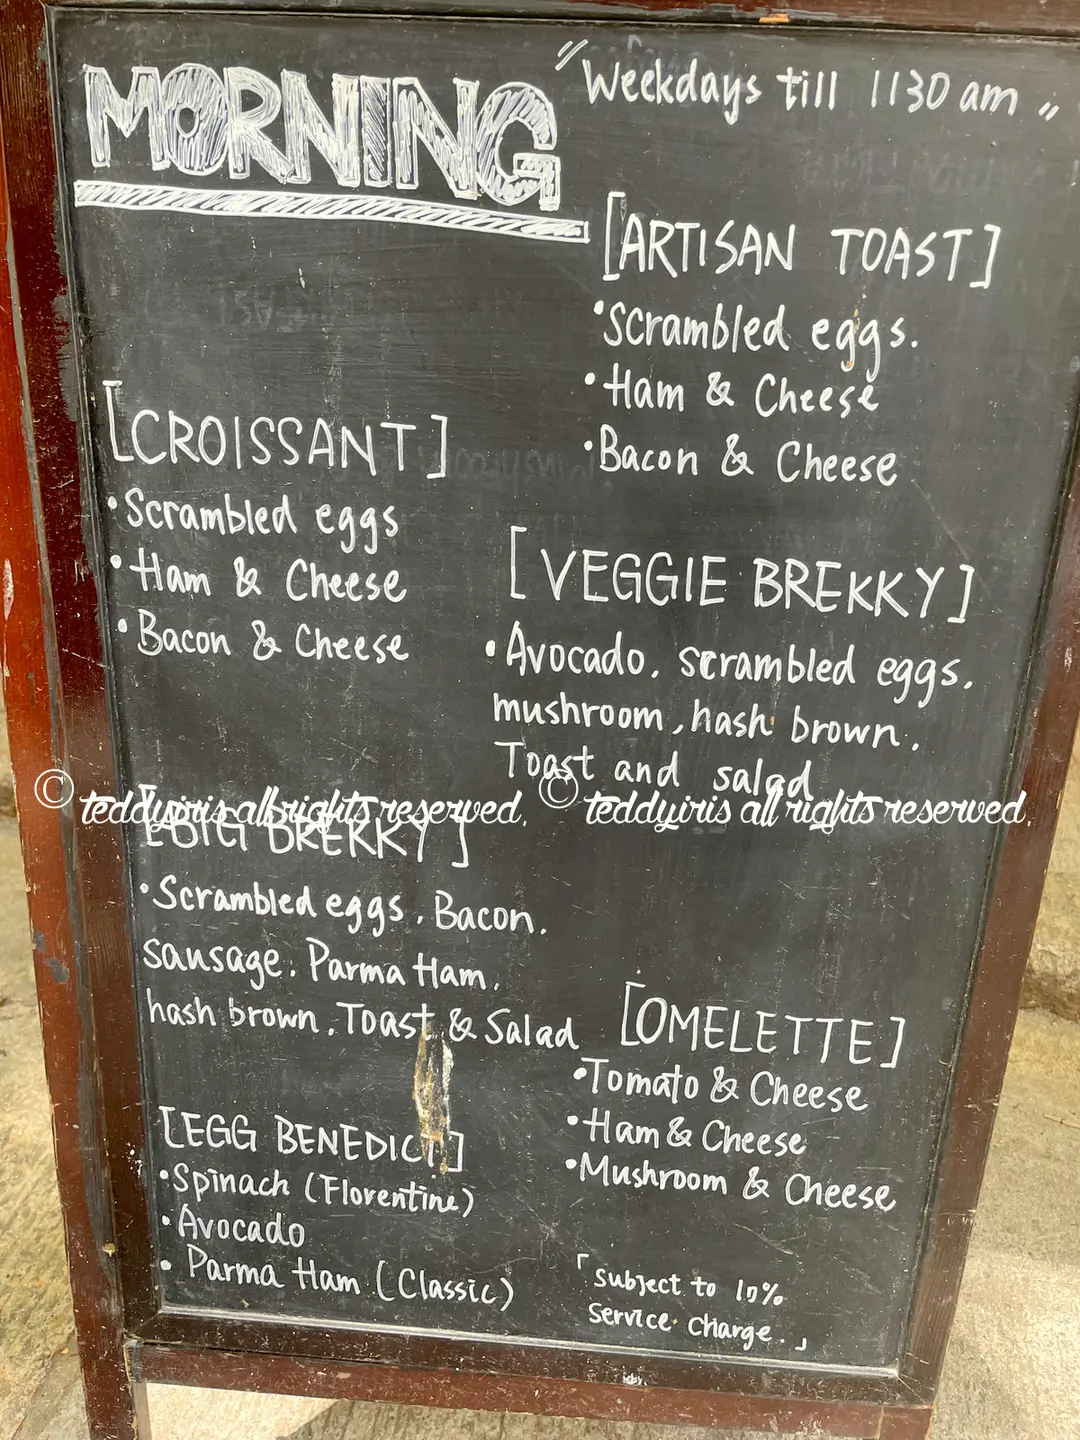 MORNING
"Weekdays till 1130 am"
[ARTISAN TOAST]
•Scrambled eggs.
•Ham & Cheese
•Bacon & Cheese
[CROISSANT]
•Scrambled eggs
•Ham & Cheese
•Bacon & Cheese
[VEGGIE BREKKY]
•Avocado. scrambled eggs.
mushroom, hash brown.
Toast and salad
© teddyiris all rights reserved. © teddyiris all rights reserved.
[BIG BREKKY]
•Scrambled eggs. Bacon.
sausage. Parma Ham.
hash brown. Toast & Salad
[EGG BENEDICT]
•Spinach (Florentine)
•Avocado
•Parma Ham (Classic)
[OMELETTE]
•Tomato & Cheese
•Ham & Cheese
•Mushroom & Cheese
「subject to 10%
service charge.」